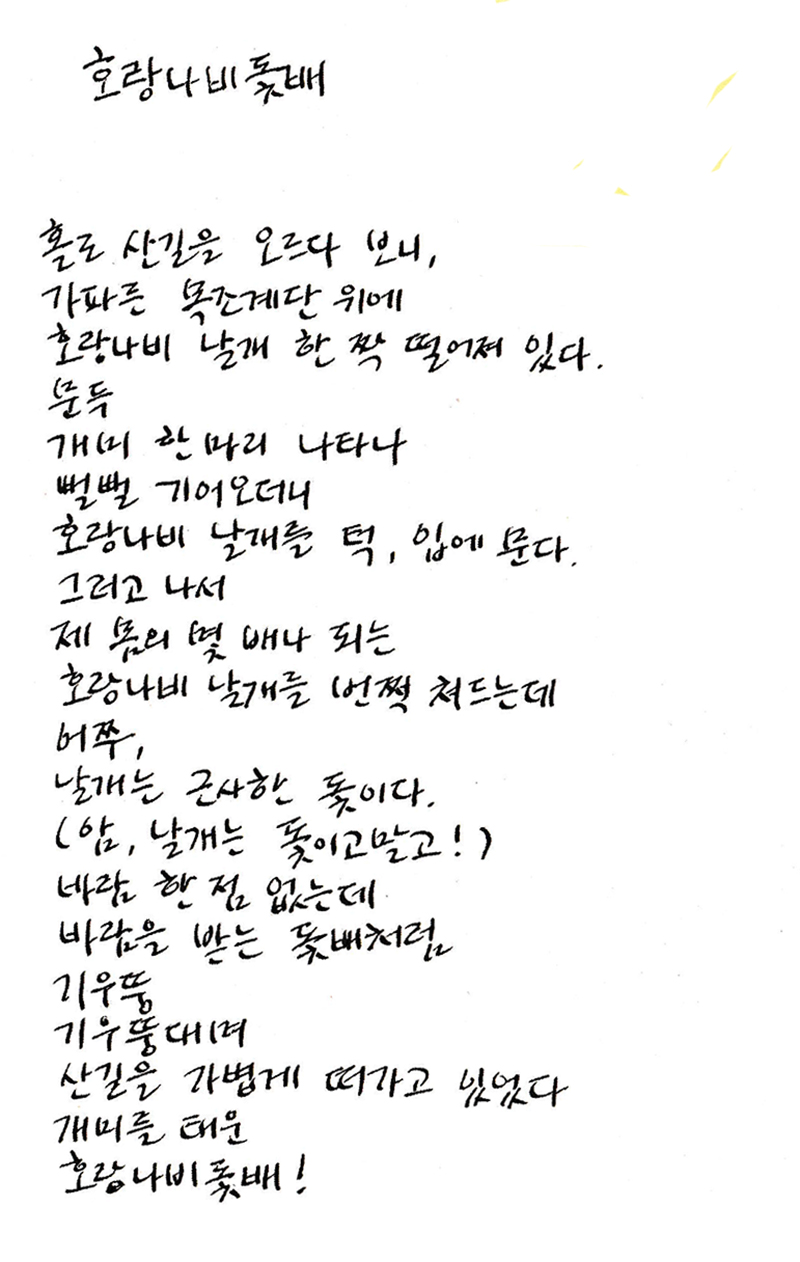 호랑나비돛배
홀로 산길을 오르다 보니,
가파른 목조계단 위에
호랑나비 날개 한 짝 떨어져 있다.
문득
개미 한 마리 나타나
뻘뻘 기어오더니
호랑나비 날개를 턱, 입에 문다.
그러고 나서
제 몸의 몇 배나 되는
호랑나비 날개를 번쩍 쳐드는데
어쭈,
날개는 근사한 돛이다.
(암, 날개는 돛이고말고!)
바람 한 점 없는데
바람을 받는 돛배처럼
기우뚱
기우뚱대며
산길을 가볍게 떠가고 있었다
개미를 태운
호랑나비돛배!